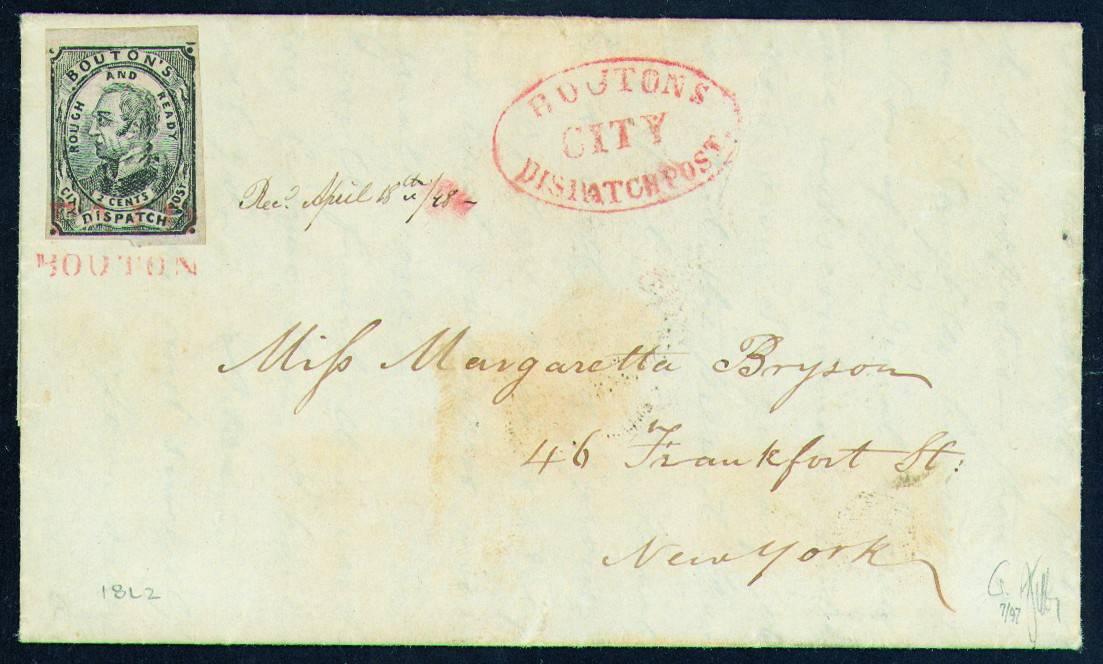 BOUTON'S
AND
ROUGH READY
2 CENTS
CITY DISPATCH POST
BOUTON
BOUTONS
CITY
DISPATCH POST.
Rec.d April 18th/48
Miss Margaretta Bryson
46 Frankfort St.
New York
18L2
G.
7/97